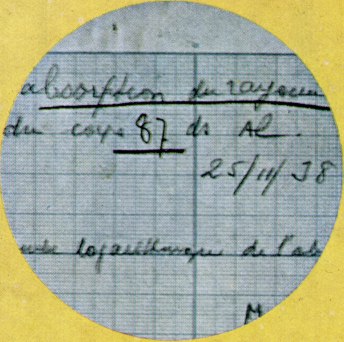 absorption du rayonn
du corps 87 ds Al.
25/11/38
logarithmique de l'ab
M